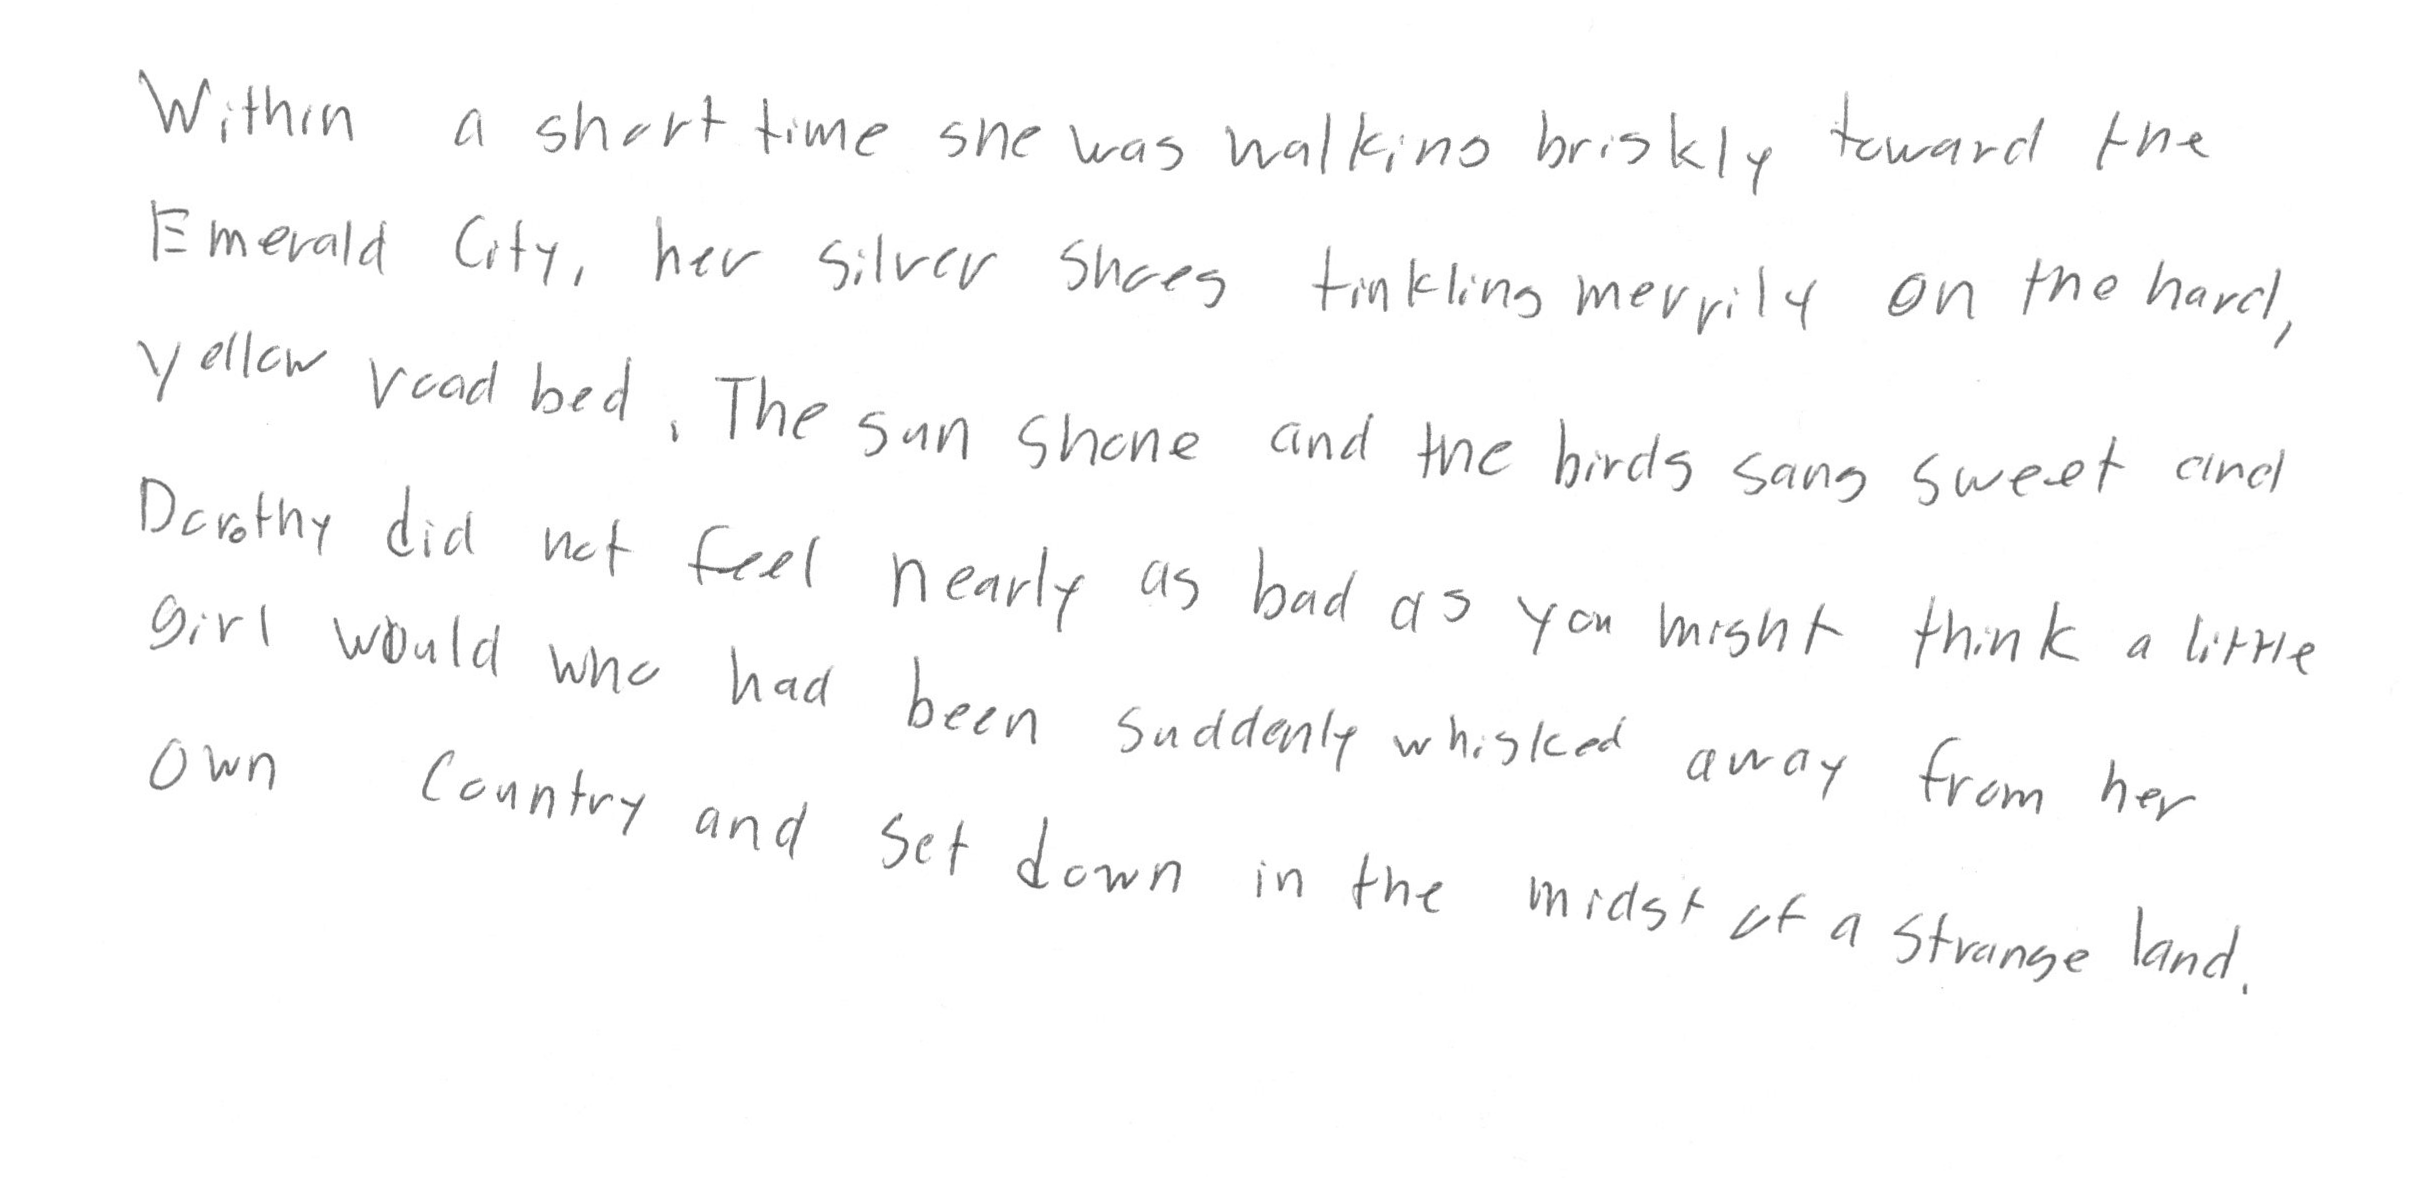 Within a short time she was walking briskly toward the
Emerald City, her silver shoes tinkling merrily on the hard,
yellow road bed. The sun shone and the birds sang sweet and
Dorothy did not feel nearly as bad as you might think a little
girl would who had been suddenly whisked away from her
own country and set down in the midst of a strange land.